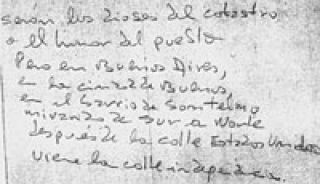 serán los dioses del catastro
o el humor del pueblo
Pero en Buenos Aires,
en la ciudad de Buenos,
en el barrio de Santelmo
mirando de Sur a Norte
después de la calle Estados Unidos
viene la calle independencia.